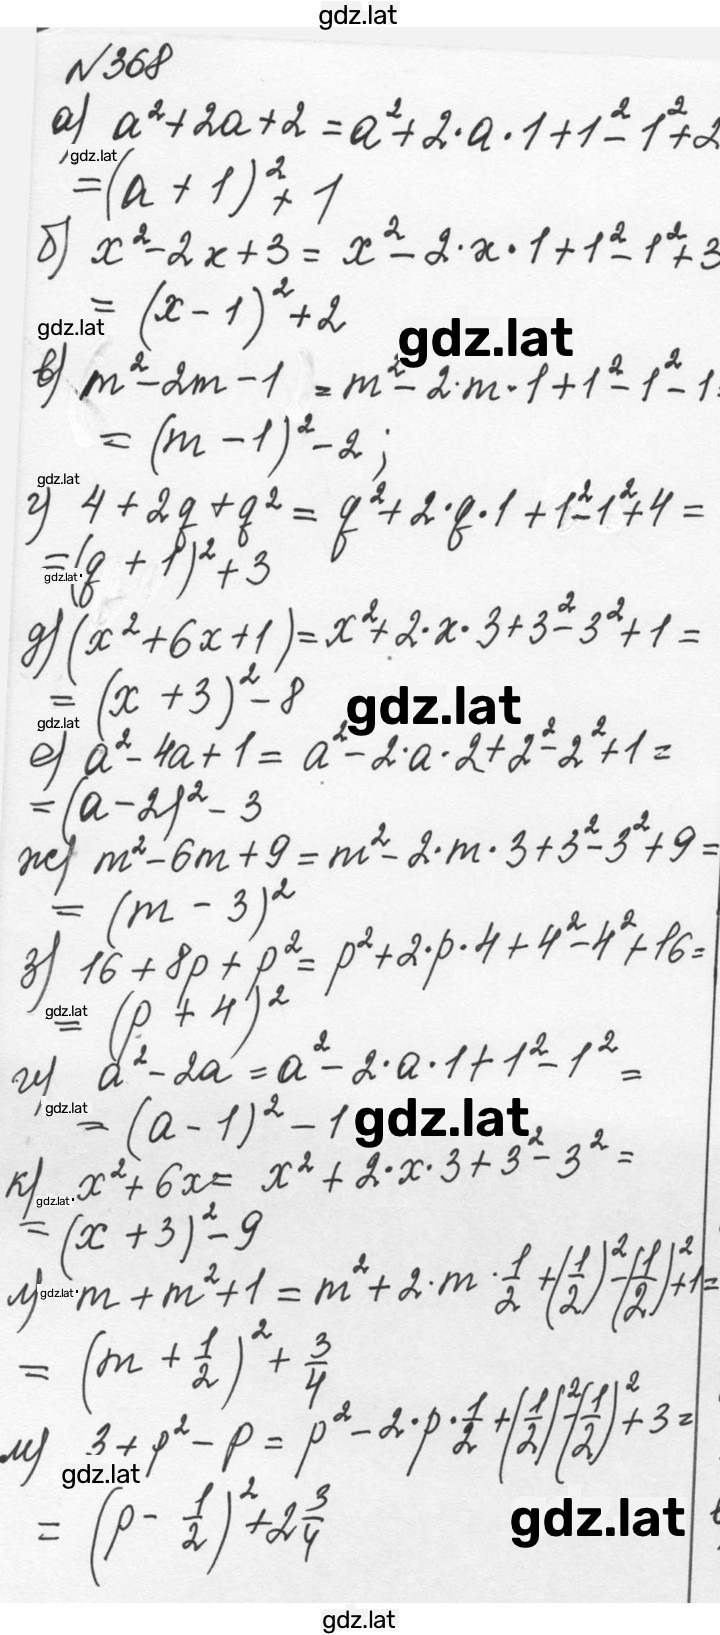 gdz.lat
№368
а) a²+2a+2=a²+2·a·1+1²-1²+2
gdz.lat
=(a+1)²+1
б) x²-2x+3=x²-2·x·1+1²-1²+3
=(x-1)²+2
gdz.lat
gdz.lat
в) m²-2m-1=m²-2·m·1+1²-1²-1=
=(m-1)²-2;
gdz.lat
г) 4+2q+q²=q²+2·q·1+1²-1²+4=
=(q+1)²+3
gdz.lat
д) (x²+6x+1)=x²+2·x·3+3²-3²+1=
=(x+3)²-8
gdz.lat
gdz.lat
е) a²-4a+1=a²-2·a·2+2²-2²+1=
=(a-2)²-3
ж) m²-6m+9=m²-2·m·3+3²-3²+9=
=(m-3)²
з) 16+8p+p²=p²+2·p·4+4²-4²+16=
gdz.lat
=(p+4)²
и) a²-2a=a²-2·a·1+1²-1²=
gdz.lat
=(a-1)²-1
gdz.lat
к) x²+6x=x²+2·x·3+3²-3²=
gdz.lat
=(x+3)²-9
л) m+m²+1=m²+2·m·1/2+(1/2)²-(1/2)²+1=
gdz.lat
=(m+1/2)²+3/4
м) 3+p²-p=p²-2·p·1/2+(1/2)²-(1/2)²+3=
gdz.lat
=(p-1/2)²+2 3/4
gdz.lat
gdz.lat